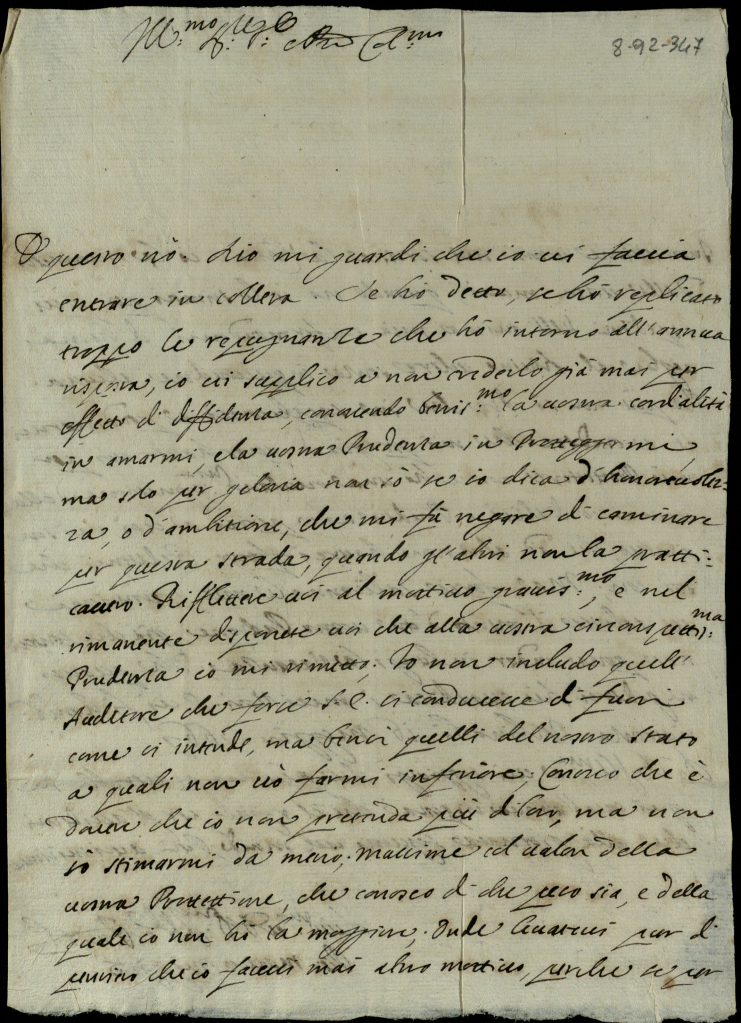 Ill.mo Sig.re
8-92-347
questo nò. Dio mi guardi che io vi faccia
entrare in collera. Se hò detto, se hò replicato
troppo le repugnanze che hò intorno all'annua
risposta, io vi supplico a non crederlo già mai per
effetto di diffidenza, conoscendo beniss.mo la vostra cordialità
in amarmi, e la vostra Prudenza in Proteggermi,
ma solo per gelosia non sò se io dica d'honorevolez=
za, o d'ambitione, che mi fà negare di caminare
per questa strada, quando gl'altri non la pratti-
cassero. Riflettete voi al mottivo graviss.mo, e nel
rimanente disponete voi che alla vostra circonspettiss.ma
Prudenza io mi rimetto; Io non includo quell'
Auditore che forse S. A. si conducesse di fuori
come si intende, ma bensi quelli del nostro stato
a quali non vò farmi inferiore; Conosco che è
dovere che io non pretenda più di loro, ma non
sò stimarmi da meno; massime col valor della
vostra Protettione, che conosco di che peso sia, e della
quale io non hò la maggiore; Onde levatevi pur di
pensiero che io facessi mai altro mottivo, perche se per